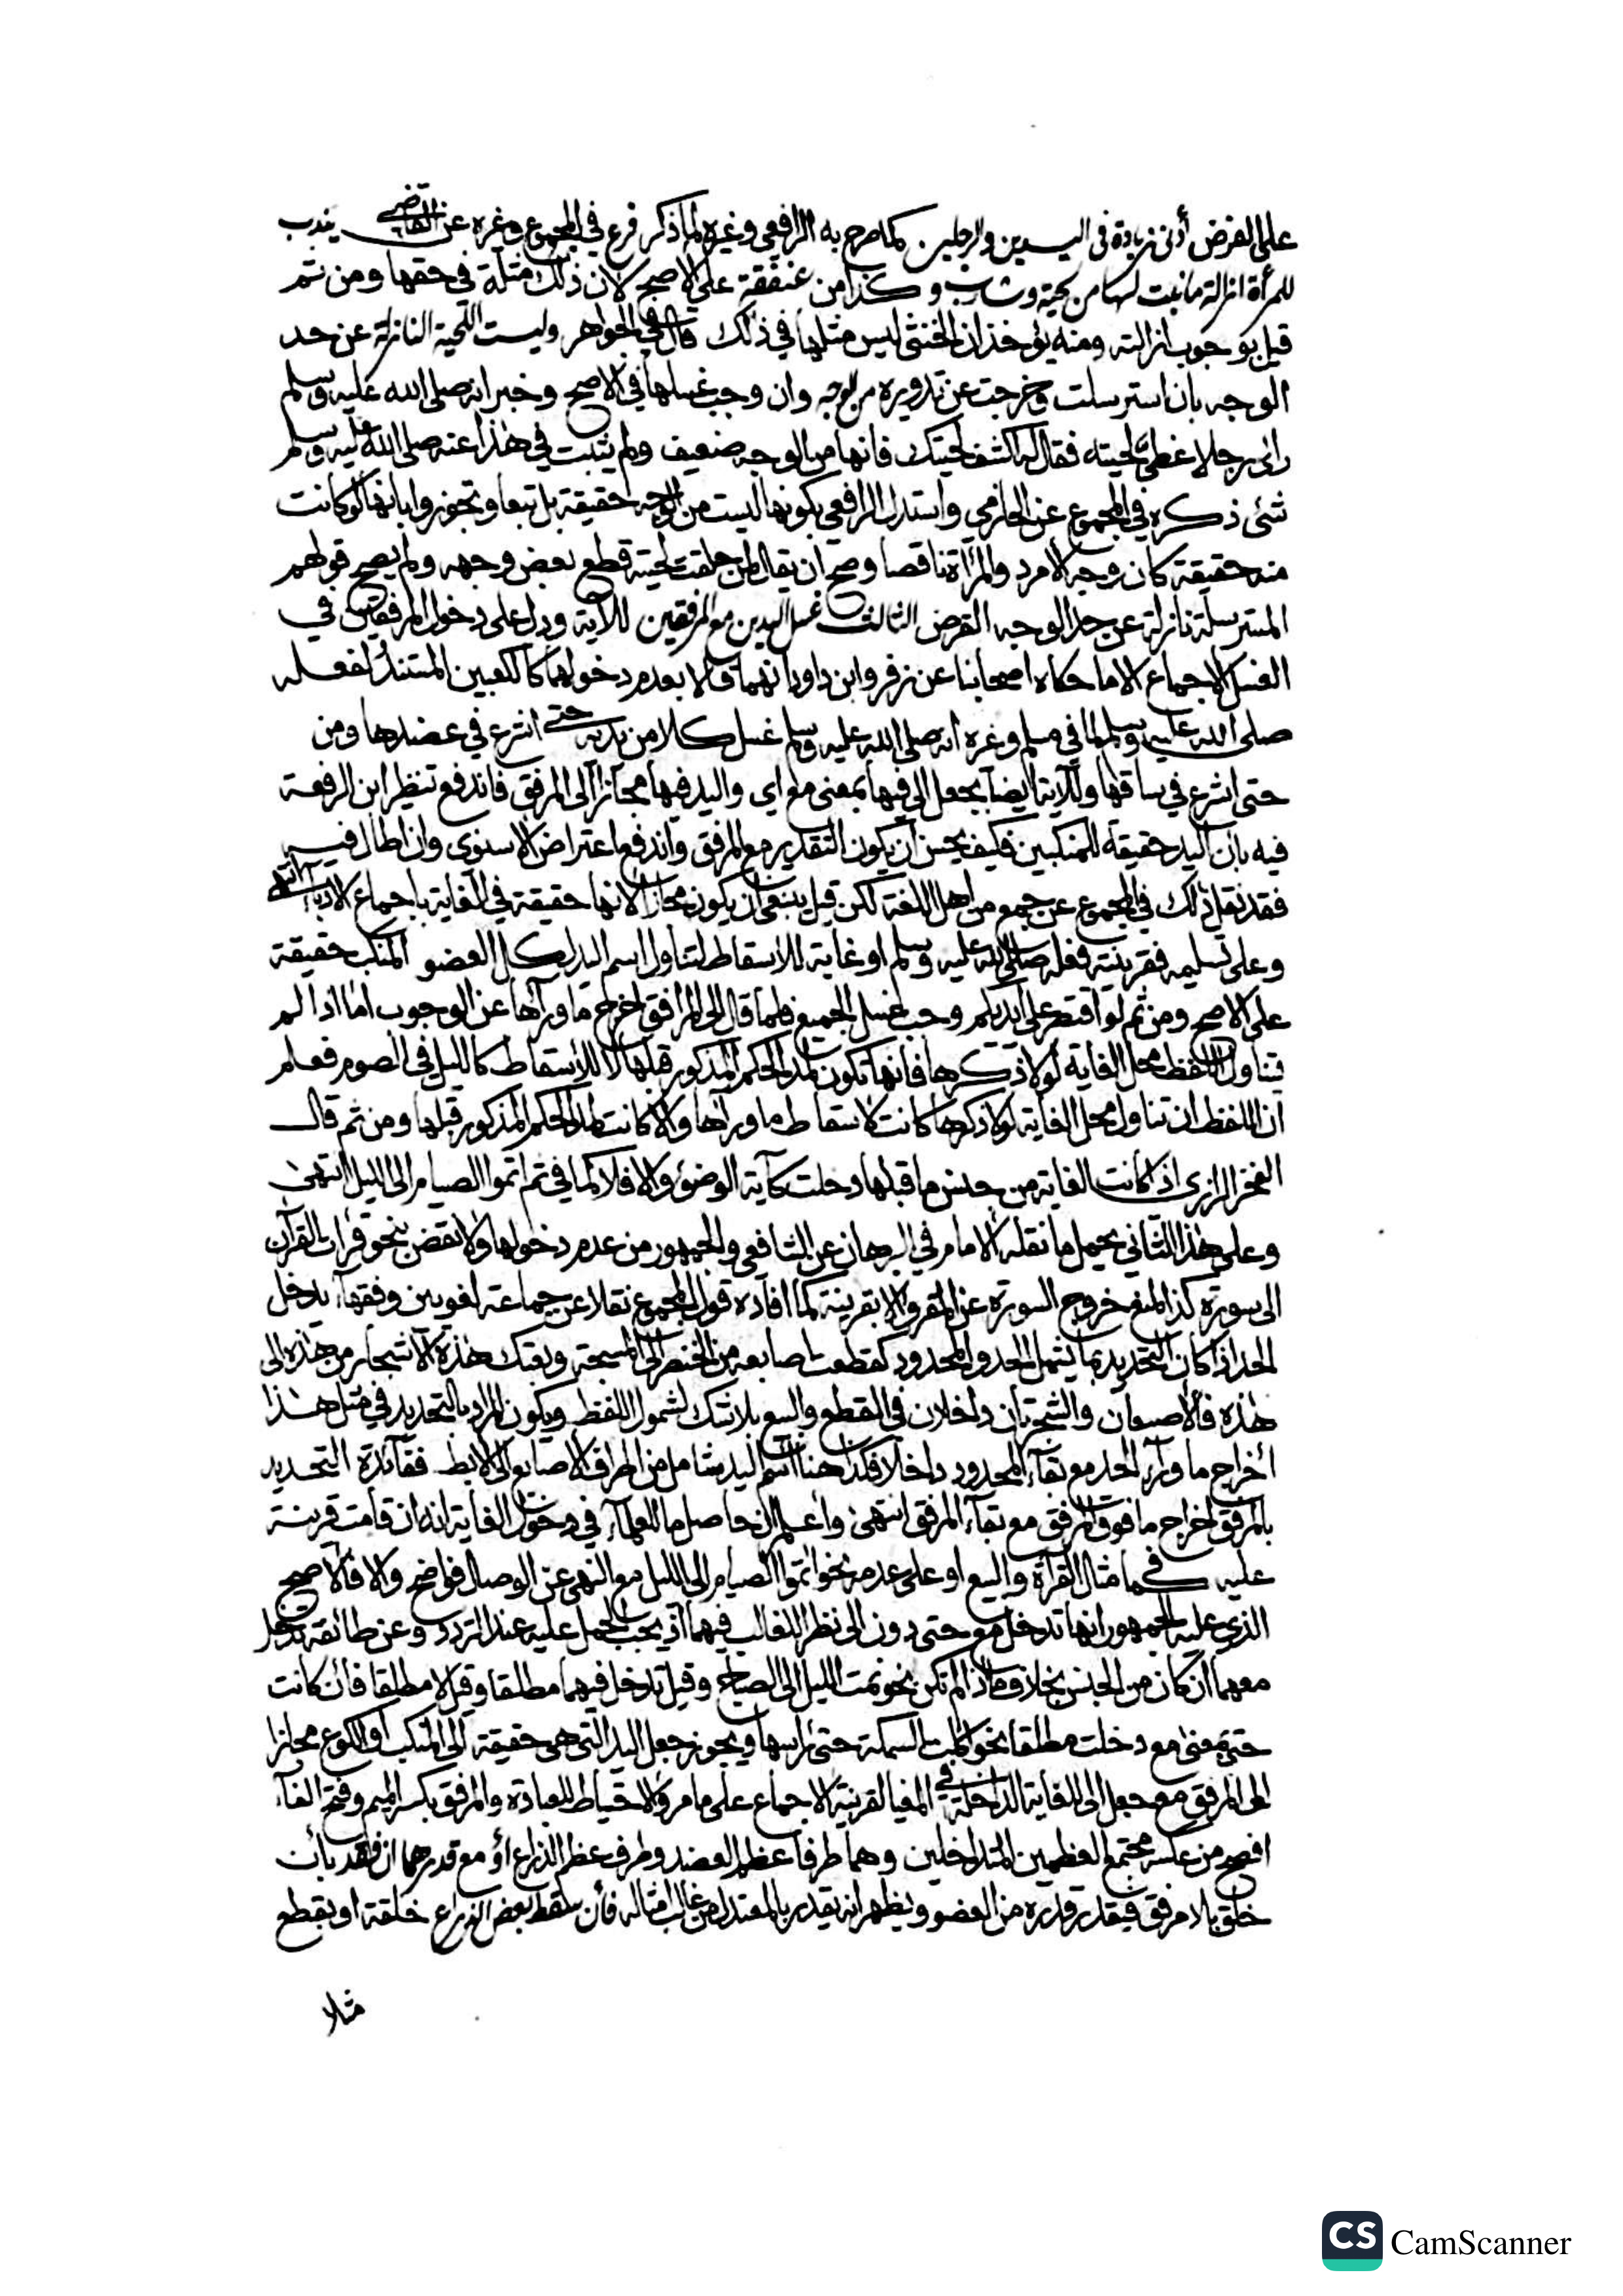 على الفرض أدنى زيادة في اليدين والرجلين كما صرح به الرافعي وغيره لما ذكر فرع في المجموع وغيره عن القاضي يندب
للمرأة ازالة ما نبت لها من لحية وشارب وكذا من عنفقة على الاصح لان ذلك مثلة في حقها ومن ثم
قيل بوجوب ازالته ومنه يؤخذ ان الخنثى ليس مثلها في ذلك قال في الجواهر وليست اللحية النازلة عن حد
الوجه بان استرسلت وخرجت عن تدويره من الوجه وان وجب غسلها في الاصح وخبر انه صلى الله عليه وسلم
رائ رجلا غطى لحيته فقال له اكشف لحيتك فانها من الوجه ضعيف ولم يثبت في هذا عنه صلى الله عليه وسلم
شئ ذكره في المجموع عن الحازمي واستدل الرافعي بكونها ليست من الوجه حقيقة بل تبعا وتجوزوا بانها لو كانت
منه حقيقة كان وجه الامرد والمرأة ناقصا وصح ان يقال لمن حلقت لحيته قطع بعض وجهه ولم يصح قولهم
المسترسلة نازلة عن حد الوجه الفرض الثالث غسل اليدين مع المرفقين للآية ودل على دخول المرفقين في
الغسل الاجماع الا ما حكاه اصحابنا عن زفر وابن داود انهما قالا بعدم دخولهما كالكعبين المستند لفعله
صلى الله عليه وسلم لما في مسلم وغيره انه صلى الله عليه وسلم غسل كلا من يديه حتى اشرع في عضدها ومن
حتى اشرع في ساقها وللآية ايضا بجعل الى فيها بمعنى مع اي واليد فيها مجازا الى المرفق فاندفع تنظير ابن الرفعة
فيه بان اليد حقيقة للمنكبين فكيف يحسن ان يكون التقدير مع المرفق واندفع اعتراض الاسنوى وان اطال فيه
فقد نقل ذلك في المجموع عن جمع من اهل اللغة لكن قيل ينبغي ان يكون مجازا لانها حقيقة في الغاية باجماع الادباء انتهى
وعلى تسليمه فقرينته فعله صلى الله عليه وسلم او غاية للاسقاط لتناول اسم اليد لكل العضو المنكب حقيقة
على الاصح ومن ثم لو اقتصر على ايديكم وجب غسل الجميع فلما قال الى المرافق اخرج ما ورآها عن الوجوب اما اذا لم
يتناول اللفظ محل الغاية لولا ذكرها فانها تكون لمد الحكم المذكور قبلها لا للاسقاط كالليل في الصوم فعلم
ان اللفظ ان تناول محل الغاية لولا ذكرها كانت لاسقاط ما ورآها والا كانت لمد الحكم المذكور قبلها ومن ثم قال
الفخر الرازى اذا كانت الغاية من جنس ما قبلها دخلت كآية الوضوء والا فلا كما في ثم اتموا الصيام الى الليل انتهى
وعلى هذا الثاني يحمل ما نقله الامام في البرهان عن الشافعي والجمهور من عدم دخولها ولا نقض بنحو قرات القرآن
الى سورة كذا لمنع خروج السورة عن المقروء الا بقرينة كما افاده قول المجموع نقلا عن جماعة لغويين وفقهاء يدخل
الحد اذا كان التحديد بما يشمل الحد والمحدود كقطعت اصابعه من الخنصر الى المسبحة وبعتك هذه الاشجار من هذه الى
هذه فالاصبعان والشجرتان داخلان في القطع والبيع بلا شك لشمول اللفظ ويكون المراد بالتحديد في مثل هذا
اخراج ما ورآء الحد مع بقاء المحدود داخلا فكذا هنا اسم اليد شامل من اطراف الاصابع الى الابط ففائدة التحديد
بالمرفق اخراج ما فوق المرفق مع بقاء المرفق انتهى واعلم ان حاصل ما للعلماء في دخول الغاية انه ان قامت قرينة
عليه كما في مثال القرآة والبيع او على عدمه نحو اتموا الصيام الى الليل مع النهى عن الوصال فواضح والا فالاصح
الذي عليه الجمهور انها تدخل مع حتى دون الى نظرا للغالب فيهما اذ يجب الحمل عليه عند التردد وعن طائفة تدخل
معهما ان كان من الجنس بخلاف ما اذا لم تكن نحو نمت الليل الى الصباح وقيل تدخل فيهما مطلقا وقيل لا مطلقا فان كانت
حتى بمعنى مع دخلت مطلقا نحو اكلت السمكة حتى رأسها ويجوز جعل اليد التي هي حقيقة الى المنكب او الكوع مجازا
الى المرفق مع جعل الى للغاية الداخلة في المغيا لقرينة الاجماع على ما مر والاحتياط للعبادة والمرفق بكسر الميم وفتح الفآء
افصح من عكسه مجتمع العظمين المتداخلين وهما طرفا عظم العضد وطرف عظم الذراع او مع قدرهما ان فقد بان
خلق بلا مرفق فيقدر قدره من العضو ويظهر انه يقدر بالمعتدل من غالب امثاله فان سقط بعض الذراع خلقة او بقطع
مثلا
CS CamScanner